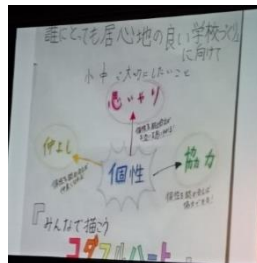 誰にとっても居心地の良い学校づくり
に向けて
小中で大切にしたいこと
思いやり
仲よし
個性
協力
『みんなで描こう
コダフルハート